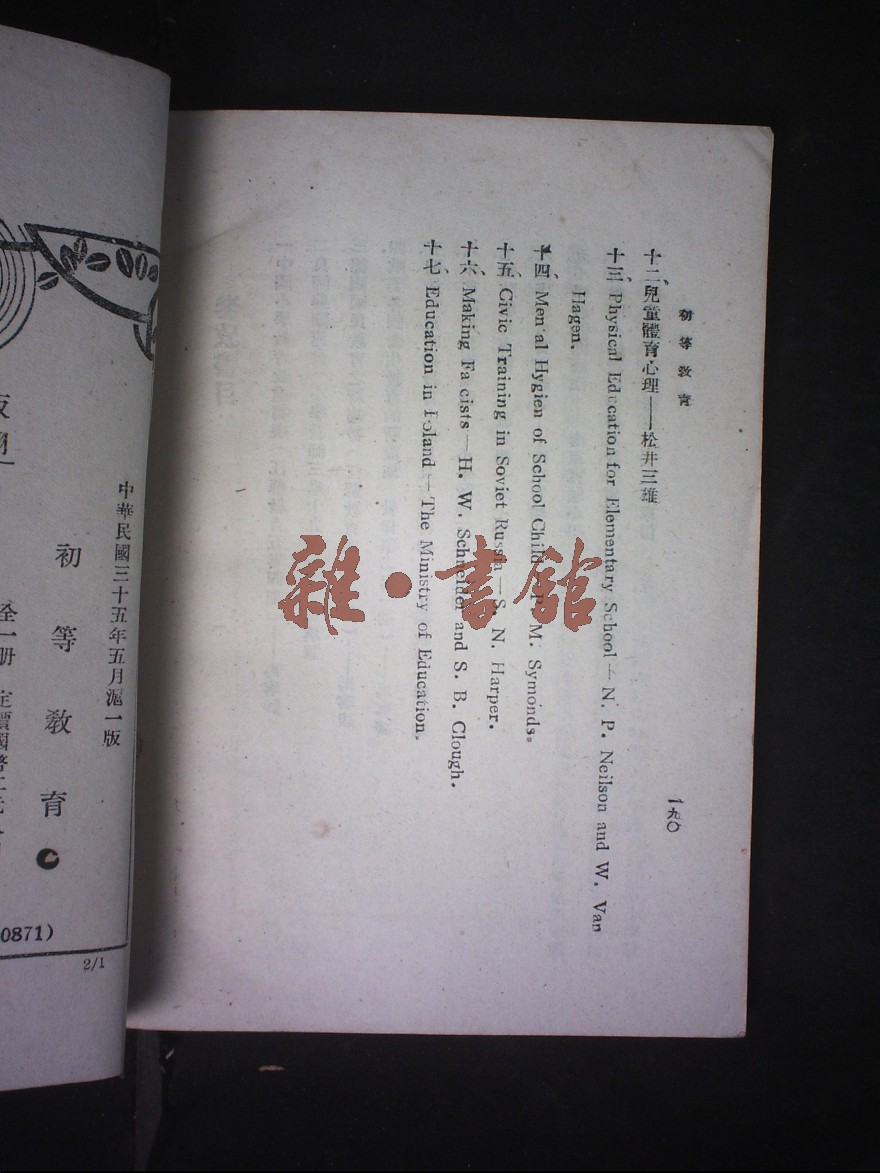 初等教育
一九〇
十二、兒童體育心理——松井三雄
十三、Physical Education for Elementary School — N. P. Neilson and W. Van
Hagen.
十四、Men al Hygien of School Child P. M. Symonds.
十五、Civic Training in Soviet Russia — S. N. Harper.
十六、Making Fa cists — H. W. Schneider and S. B. Clough.
十七、Education in Poland — The Ministry of Education.
中華民國三十五年五月滬一版
初等教育
全一册
0871)
2/1
雜·書館